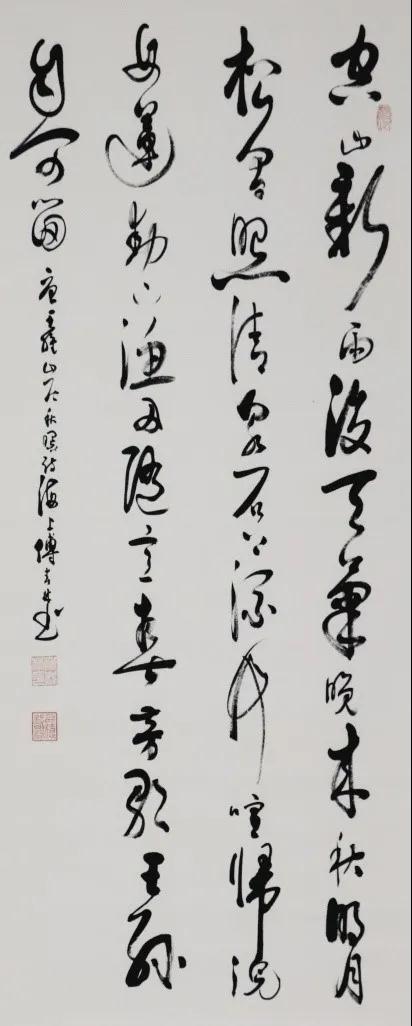 空山新雨後天氣晚來秋明月
松間照清泉石上流竹喧歸浣
女蓮動下漁舟隨意春芳歇王孫
自可留
唐王維山居秋暝詩海上傅